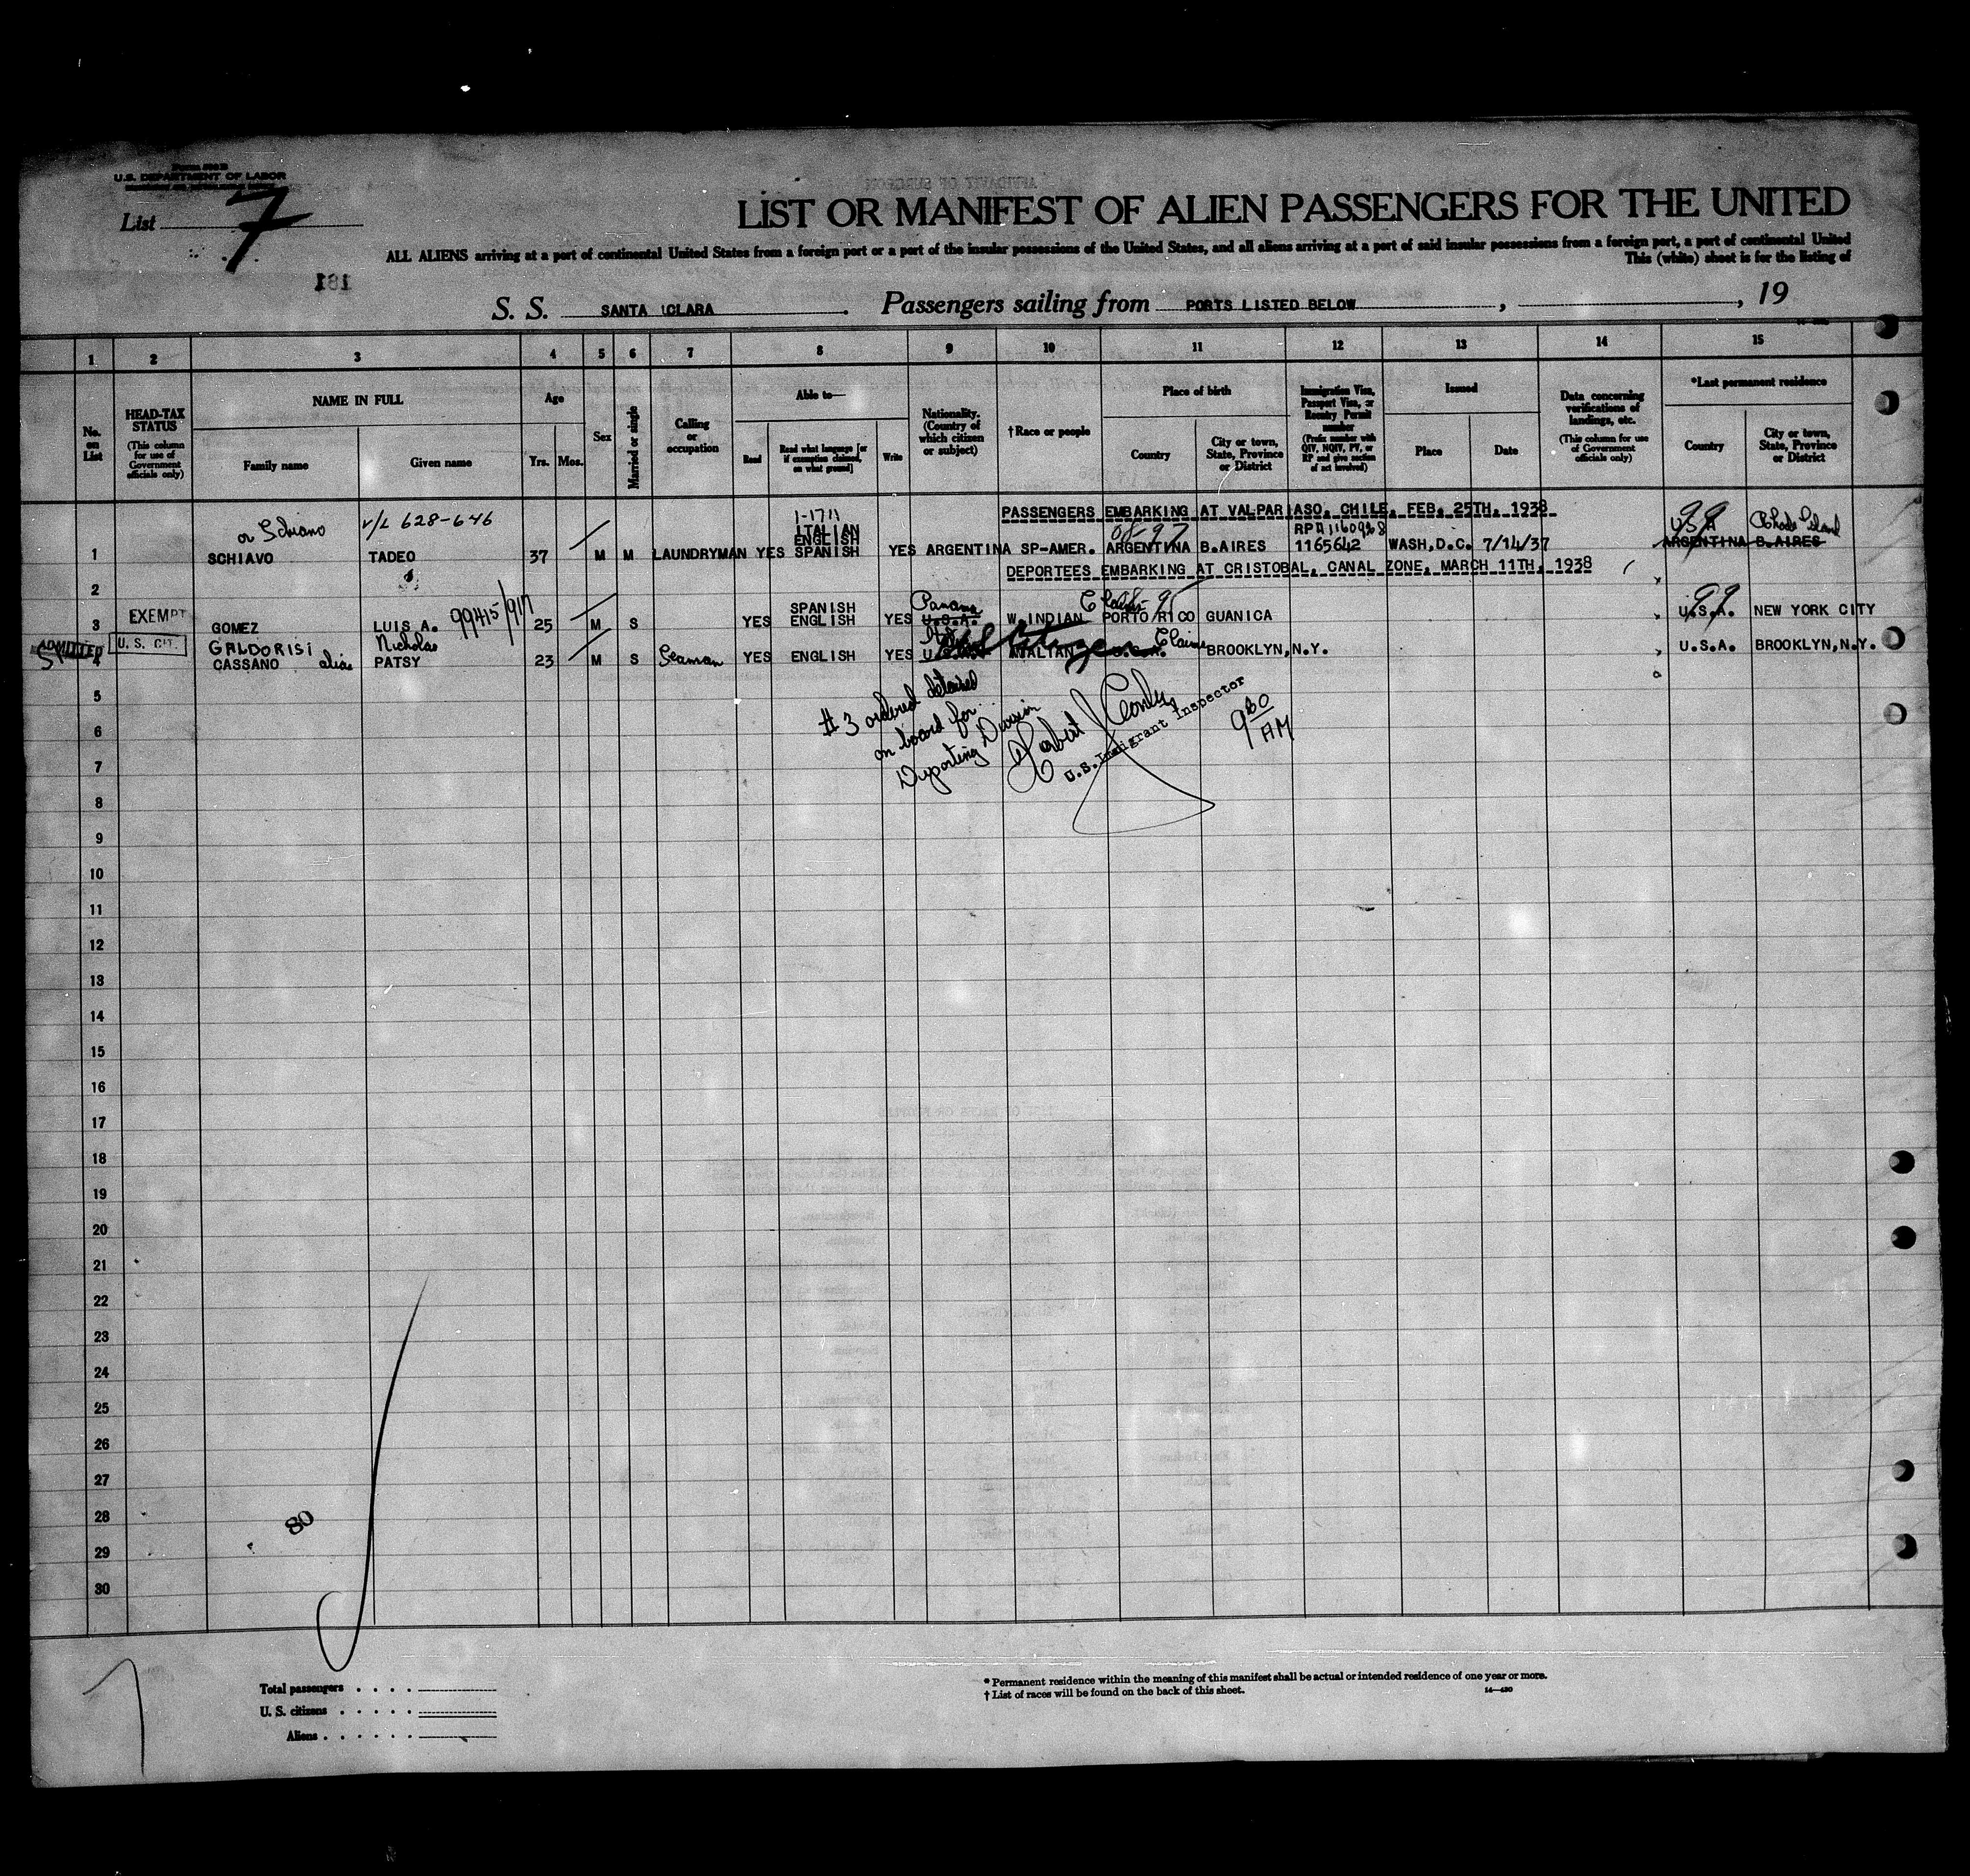 Form 500 B
U.S. DEPARTMENT OF LABOR
List 7
LIST OR MANIFEST OF ALIEN PASSENGERS FOR THE UNITED
ALL ALIENS arriving at a port of continental United States from a foreign port or a port of the insular possessions of the United States, and all aliens arriving at a port of said insular possessions from a foreign port, a port of continental United
This (white) sheet is for the listing of
181
S. S. SANTA CLARA Passengers sailing from PORTS LISTED BELOW , , 19
1 2 3 4 5 6 7 8 9 10 11 12 13 14 15
No. on List
HEAD-TAX STATUS (This column for use of Government officials only)
NAME IN FULL
Family name Given name
Age
Yrs. Mos.
Sex
Married or single
Calling or occupation
Able to—
Read Read what language [or if exemption claimed, on what ground] Write
Nationality. (Country of which citizen or subject)
†Race or people
Place of birth
Country City or town, State, Province or District
Immigration Visa, Passport Visa, or Reentry Permit number (Prefix number with QIV, NQIV, PV, or RP and give section of act involved)
Issued
Place Date
Data concerning verifications of landings, etc. (This column for use of Government officials only)
*Last permanent residence
Country City or town, State, Province or District
PASSENGERS EMBARKING AT VALPARAISO, CHILE, FEB. 25TH, 1938
or Schiano V/L 628-646 1-1711 ITALIAN 08-97 99 USA Rhode Island
1 SCHIAVO TADEO 37 M M LAUNDRYMAN YES ENGLISH SPANISH YES ARGENTINA SP-AMER. ARGENTINA B.AIRES 1165642 WASH,D.C. 7/14/37 ARGENTINA B.AIRES
DEPORTEES EMBARKING AT CRISTOBAL, CANAL ZONE, MARCH 11TH, 1938
2
EXEMPT 99415/917 SPANISH Panama 99
3 GOMEZ LUIS A. 25 M S YES ENGLISH YES U.S.A. W.INDIAN PORTO RICO GUANICA U.S.A. NEW YORK CITY
ADMITTED U.S. CIT. GALDORISI Nicholas
4 CASSANO alias PATSY 23 M S Seaman YES ENGLISH YES U.S.A. ITALIAN Claims BROOKLYN,N.Y. U.S.A. BROOKLYN,N.Y.
US Citizen
#3 ordered detained
on board for
Deporting Division
U.S. Immigrant Inspector
9 30 AM
5
6
7
8
9
10
11
12
13
14
15
16
17
18
19
20
21
22
23
24
25
26
27
28
29
30
80
Total passengers
U. S. citizens
Aliens
* Permanent residence within the meaning of this manifest shall be actual or intended residence of one year or more.
† List of races will be found on the back of this sheet.
14—430